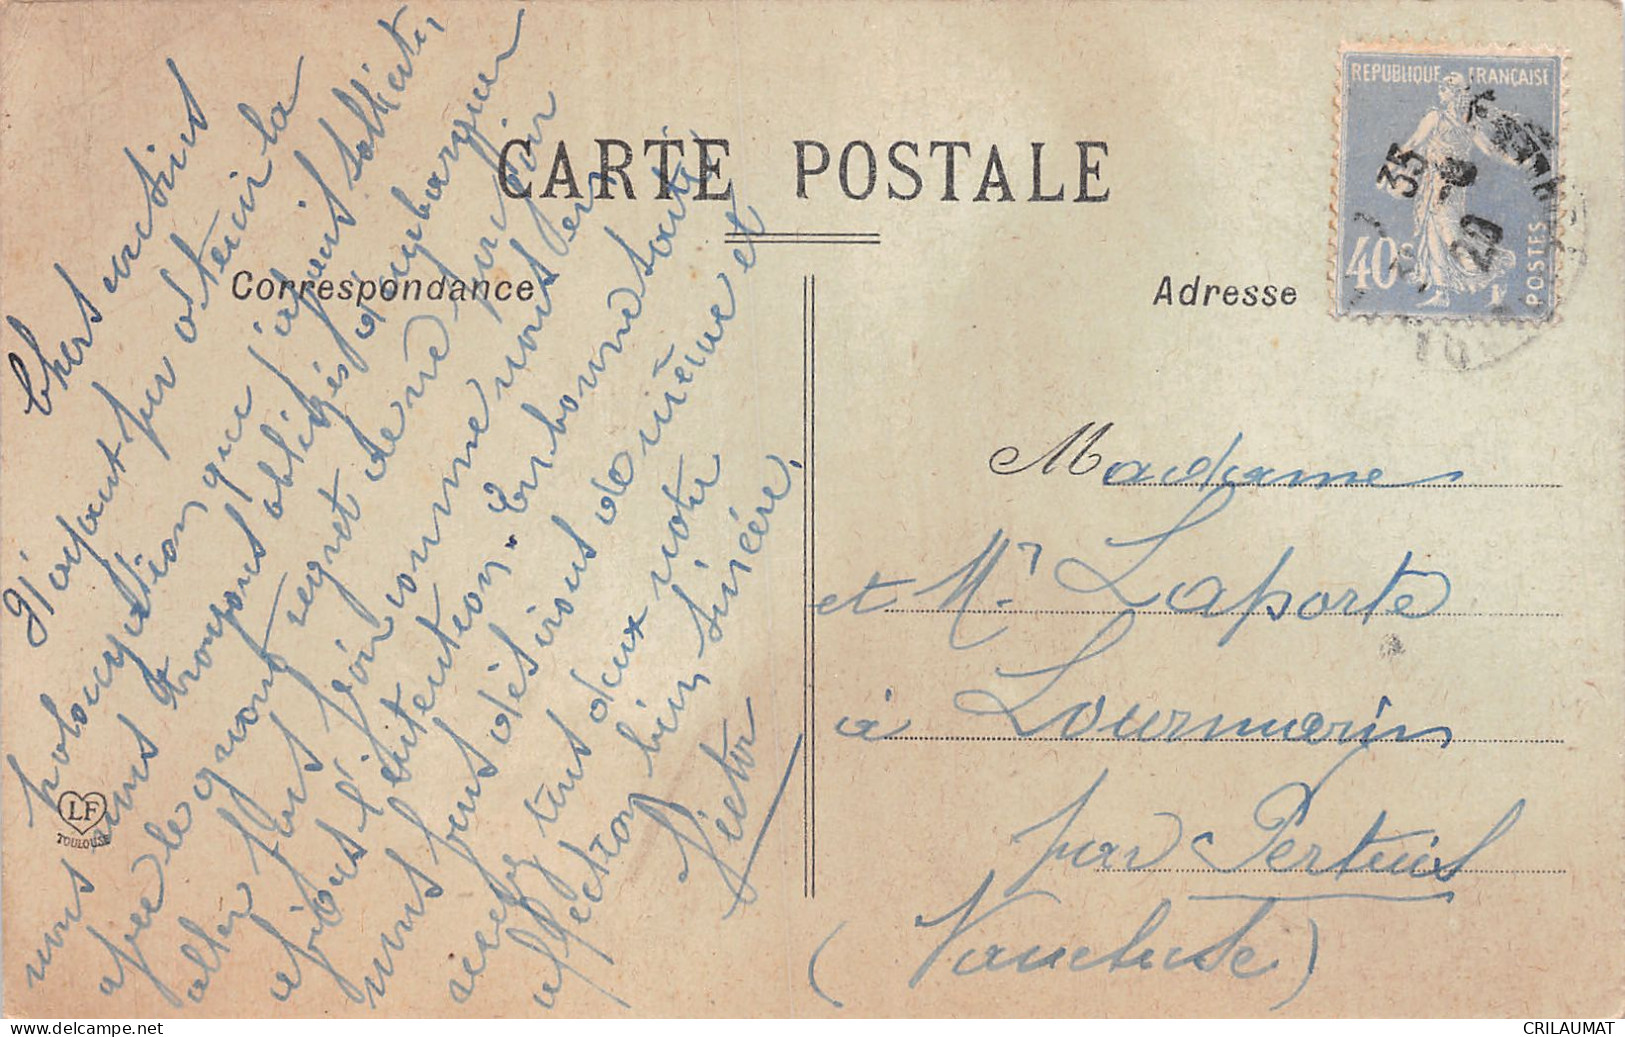 CARTE POSTALE
Correspondance
Adresse
REPUBLIQUE FRANÇAISE
40c
POSTES
35
20
Chers cousins
N'ayant pu obtenir la
prolongation que j'avais sollicitée
nous nous trouvons obligés d'embarquer
avec le grand regret de ne pouvoir
aller vous voir comme nous en
avions l'intention. En bonne santé
nous vous désirons de même et
recevez tous deux notre
affection bien sincère.
Victor
Madame
et Mr Laporte
à Lourmarin
par Pertuis
(Vaucluse)
LF
TOULOUSE
CRILAUMAT